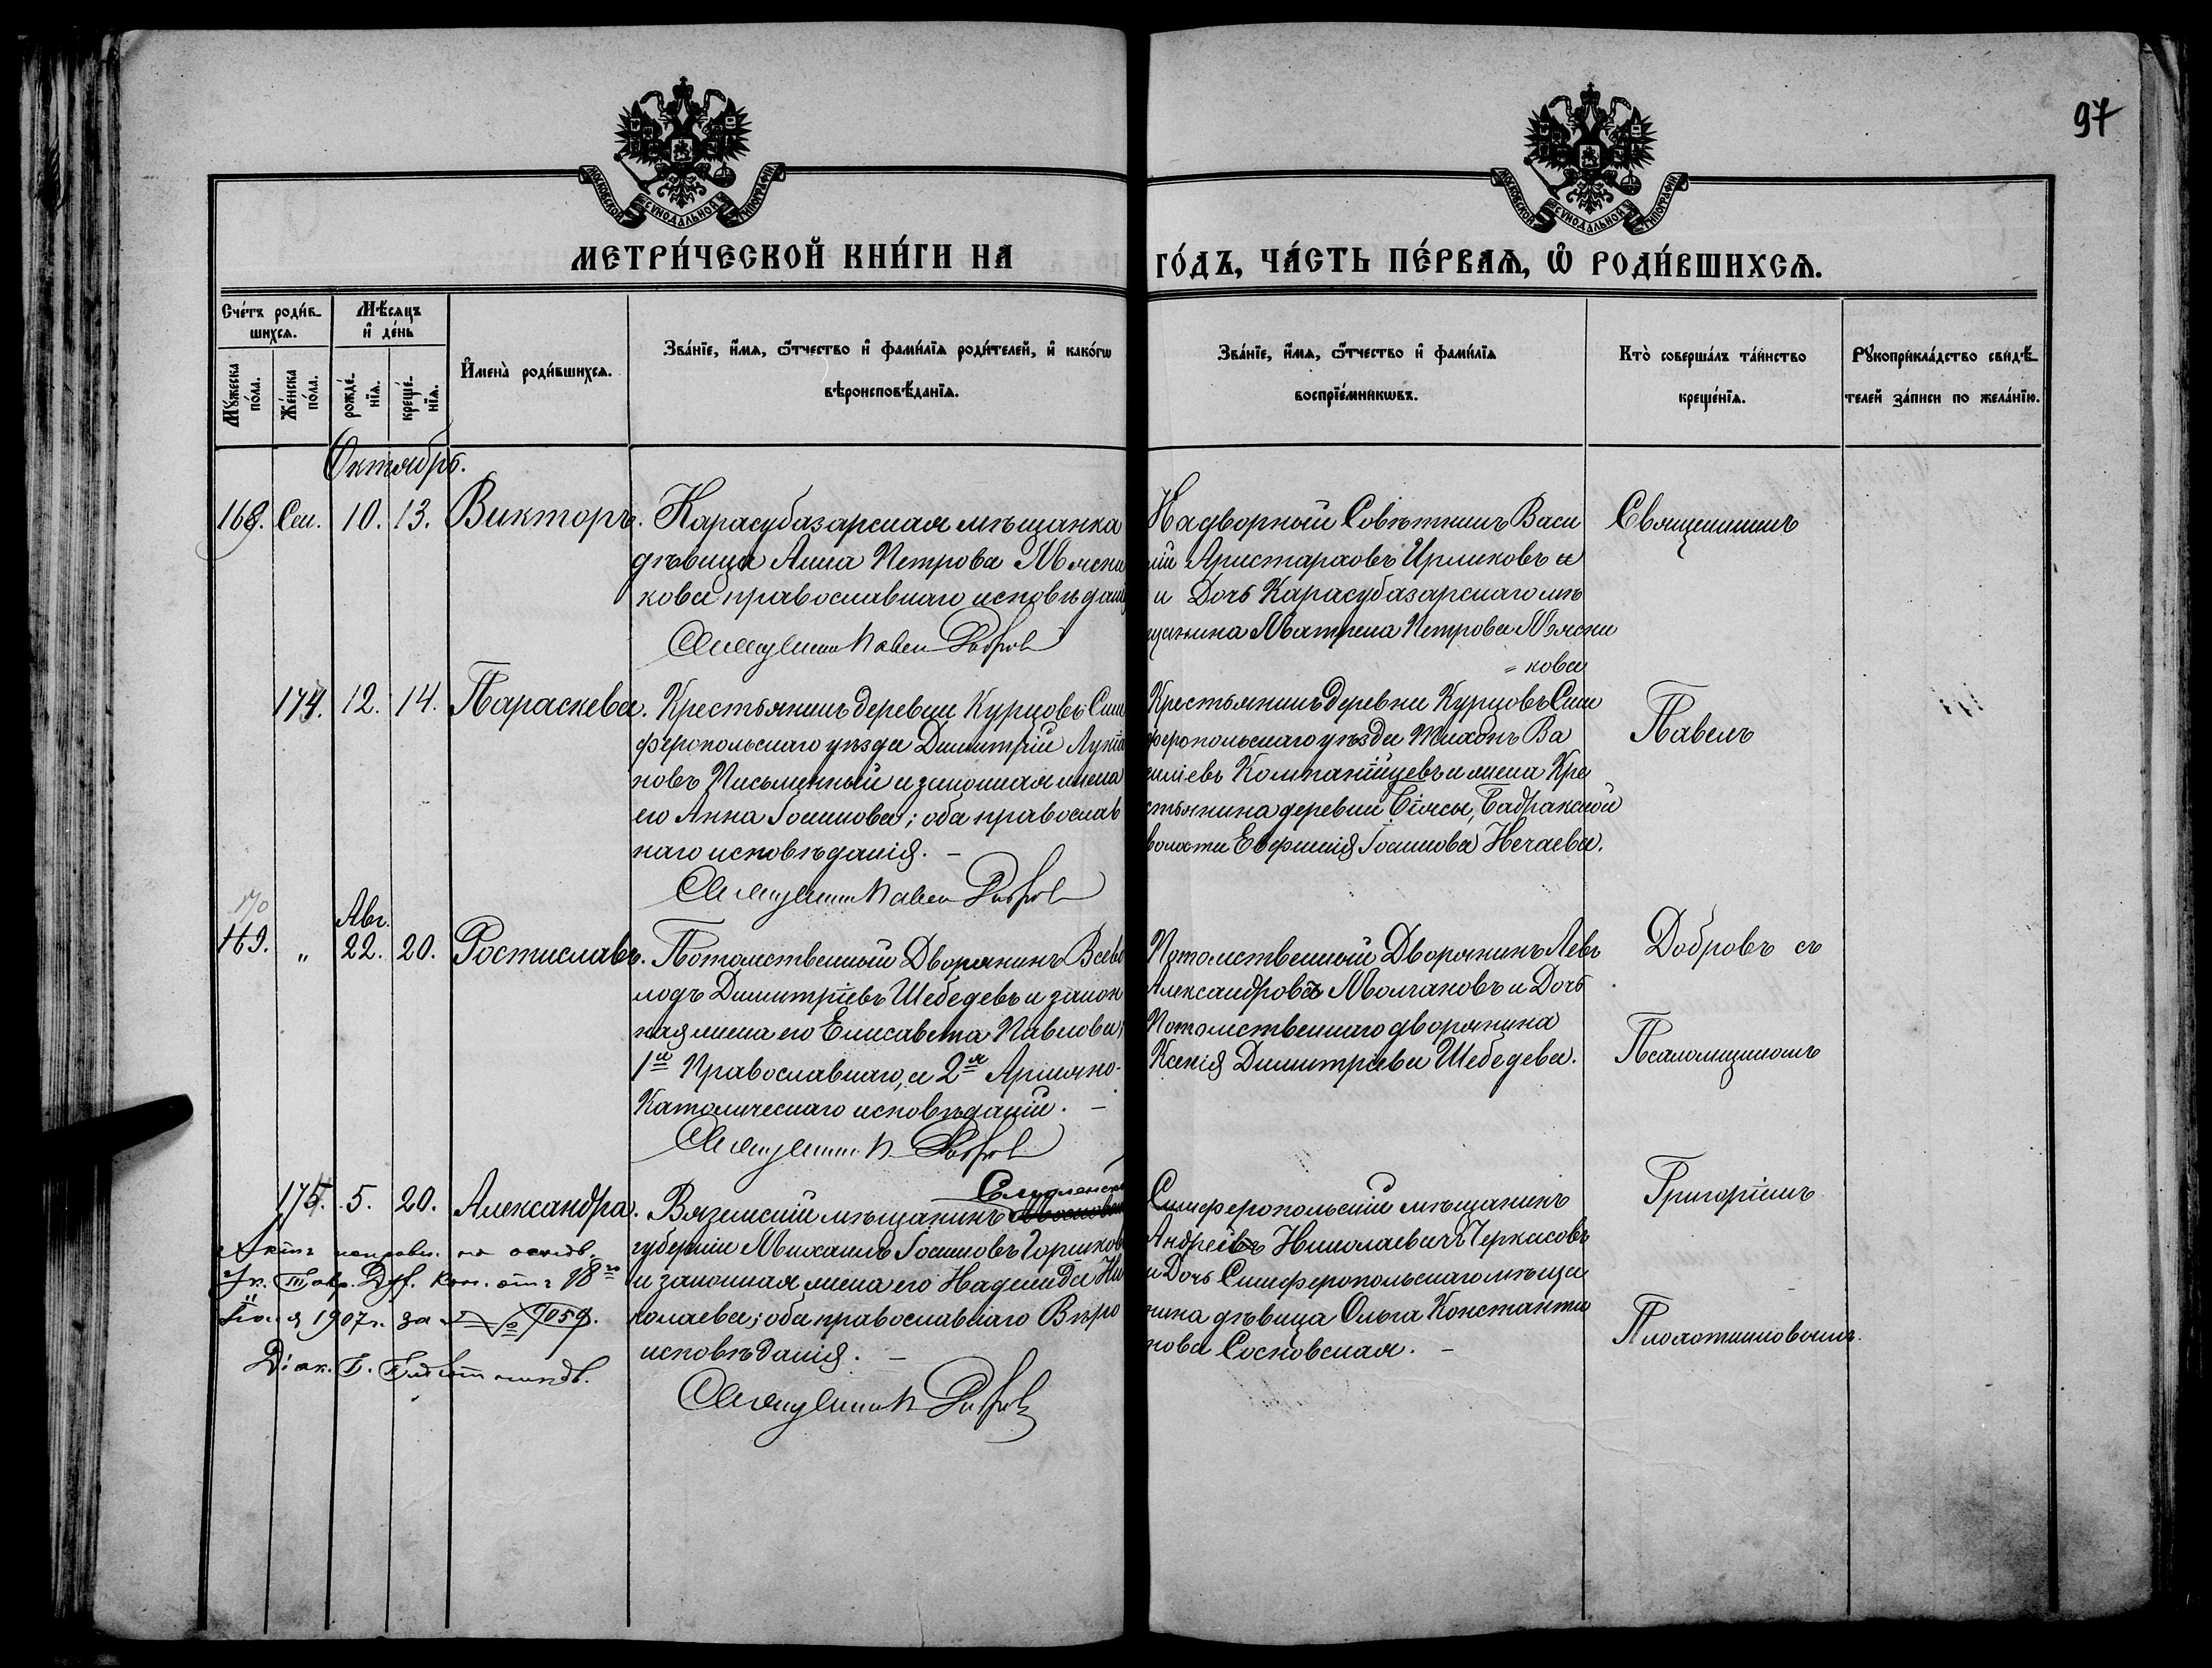 97
МОСКОВСКОЙ СѴНОДАЛЬНОЙ ТИПОГРАФІИ
МОСКОВСКОЙ СѴНОДАЛЬНОЙ ТИПОГРАФІИ
МЕТРИ́ЧЕСКОЙ КНИ́ГИ НА
ГО́ДЪ, ЧА́СТЬ ПЕ́РВАѦ, Ѡ҆ РОДИ́ВШИХСѦ.
Сче́тъ роди́в-
шихсѧ.
Мꙋ́жеска по́ла.
Же́нска по́ла.
Мѣ́сѧцъ
и҆ де́нь
рожде́-
нїѧ.
креще́-
нїѧ.
И҆мена̀ роди́вшихсѧ.
Зва́нїе, и҆́мѧ, ѻ҆́тчество и҆ фами́лїѧ роди́телей, и҆ како́гѡ
вѣроисповѣ́данїѧ.
Зва́нїе, и҆́мѧ, ѻ҆́тчество и҆ фами́лїѧ
воспрїе́мникѡвъ.
Кто̀ соверша́лъ та́инство
креще́нїѧ.
Рꙋкоприкла́дство свидѣ́-
телей за́писи по жела́нїю.
Октябрь.
168. Сен. 10. 13. Викторъ.
Карасубазарская мѣщанка
дѣвица Анна Петрова Мясни
кова православнаго исповѣданi
Священникъ Павелъ Добровъ
Надворный Совѣтникъ Васи
лій Аристарховъ Ирликовъ и
и Дочь Карасубазарскаго мѣ
щанина Матрена Петрова Мясни
= кова
Священникъ
174. 12. 14. Параскева.
Крестьянинъ деревни Курцовъ Сим
феропольскаго уѣзда Димитрій Лукiа
новъ Письменный и законная жена
его Анна Іоаннова; оба православ
наго исповѣданія. –
Священникъ Павелъ Добровъ
Крестьянинъ деревни Курцовъ Сим
феропольскаго уѣзда Тихонъ Ва
силіевъ Компанійцевъ и жена Кре
стьянина деревни Біясы, Бадракской
волости Евфимія Іоаннова Нечаева.
Павелъ
170
Авг.
169. " 22. 20. Ростиславъ.
Потомственный Дворянинъ Всево
лодъ Димитріевъ Шебедевъ и закон
ная жена его Елисавета Павлова;
1й Православнаго, а 2я Армяно-
Католическаго исповѣданій. –
Священникъ П. Добровъ
Потомственный Дворянинъ Левъ
Александровъ Молчановъ и Дочь
Потомственнаго дворянина
Ксенія Димитріева Шебедева.
Добровъ съ
Псаломщикомъ
175. 5. 20. Александра.
Смоленской
Вяземскій мѣщанинъ Московской
губерніи Михаилъ Іоанновъ Горшков
и законная жена его Надежда Ни
колаева; оба православнаго Вѣро
исповѣданія. –
Священникъ П. Добровъ
Симферопольскій мѣщанинъ
Андрей Николаевичъ Черкасовъ
и Дочь Симферопольскаго мѣща
нина дѣвица Ольга Константи
нова Сосновская. –
Григоріемъ
Плохотниковымъ.
Актъ исправл. на основ.
Ук. Тавр. Дух. Кон. отъ 18го
Іюля 1907 г. за № 7059.
Діак. Г. Плохотниковъ.